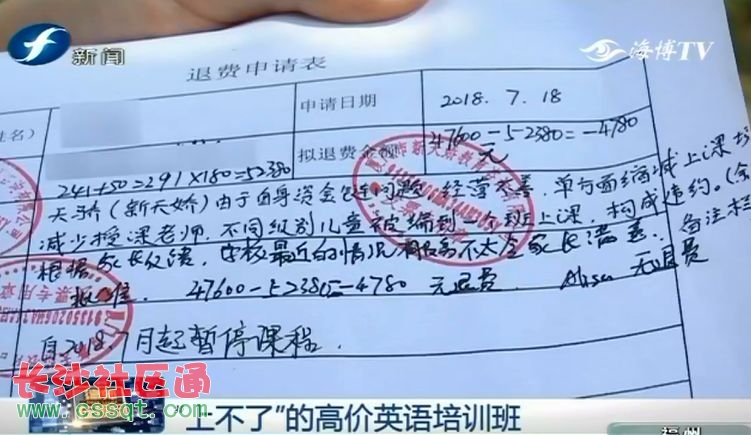 新闻
海博TV
退费申请表
姓名)
申请日期
2018.7.18
拟退费金额
47600-52380=-4780
元
241+50=291×180=52380
天骄(新天娇)由于自身资金 问题,经营不善,单方面缩减上课
减少授课老师,不同级别儿童被 到一个班上课,构成违约。
根据家长反馈, 核最近的情况 不太 家长满意,备注栏
批准. 47600-52380=-4780 元退费 Alisa 无退费
自2018.7月起暂停课程.
长沙社区通
www.cssqt.com
"上不了"的高价英语培训班
福州